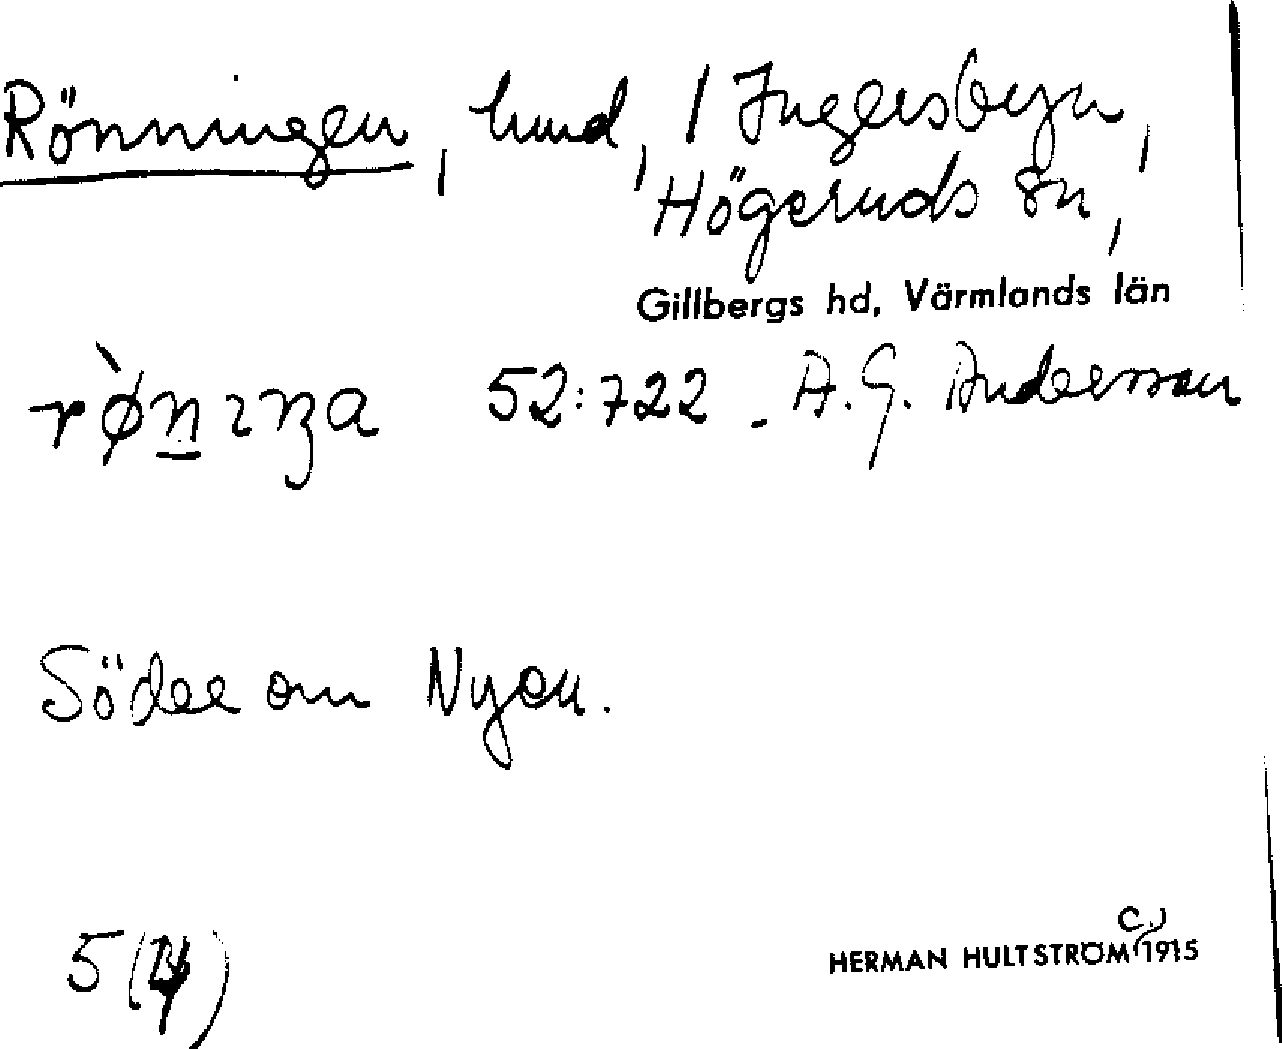 Rönningen, lund, / Ingersbyn,
Högeruds sn,
Gillbergs hd, Värmlands län
52:722 - A. G. Andersson
Söder om Nyen.
5 (
HERMAN HULTSTRÖM 1915